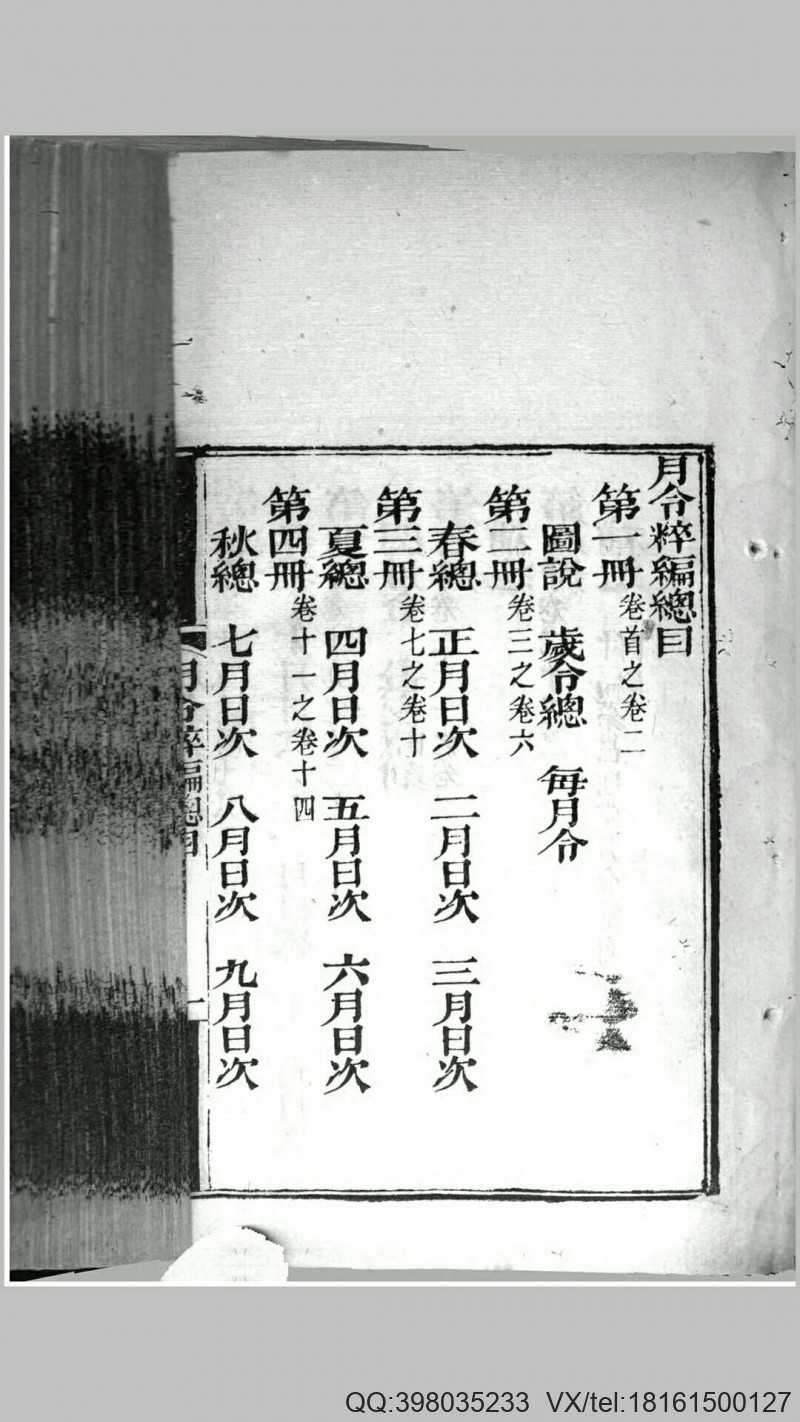 月令粹編總目
第一冊 卷首之卷二
圖說 歲令總 每月令
第二冊 卷三之卷六
春總 正月日次 二月日次 三月日次
第三冊 卷七之卷十
夏總 四月日次 五月日次 六月日次
第四冊 卷十一之卷十四
秋總 七月日次 八月日次 九月日次
月令粹編總目 一
QQ:398035233 VX/tel:18161500127